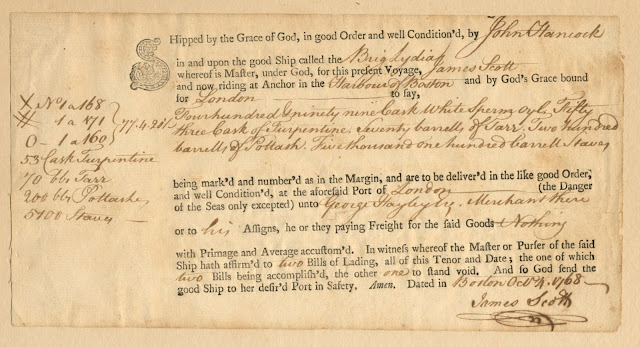 SHipped by the Grace of God, in good Order and well Condition'd, by John Hancock
in and upon the good Ship called the Brig Lydia
whereof is Master, under God, for this present Voyage, James Scott
and now riding at Anchor in the Harbour of Boston and by God's Grace bound
for London to say,
Fourhundred & ninety nine Cask White Sperm Oyle, Fifty
three Cask of Turpentine. Seventy barrells of Tarr. Two hundred
barrells of Pottash. Five thousand one hundred barrell Staves
X No 1 a 168
1 a 171
O 1 a 160
77.4.2
53 Cask Turpentine
70 bbs Tarr
200 bbs Pottashes
5100 Staves
being mark'd and number'd as in the Margin, and are to be deliver'd in the like good Order,
and well Condition'd, at the aforesaid Port of London (the Danger
of the Seas only excepted) unto George Hayley Merchant there
or to his Assigns, he or they paying Freight for the said Goods Nothing
with Primage and Average accustom'd. In witness whereof the Master or Purser of the said
Ship hath affirm'd to two Bills of Lading, all of this Tenor and Date; the one of which
two Bills being accomplish'd, the other one to stand void. And so God send the
good Ship to her desir'd Port in Safety. Amen. Dated in Boston Octo 1768
James Scott